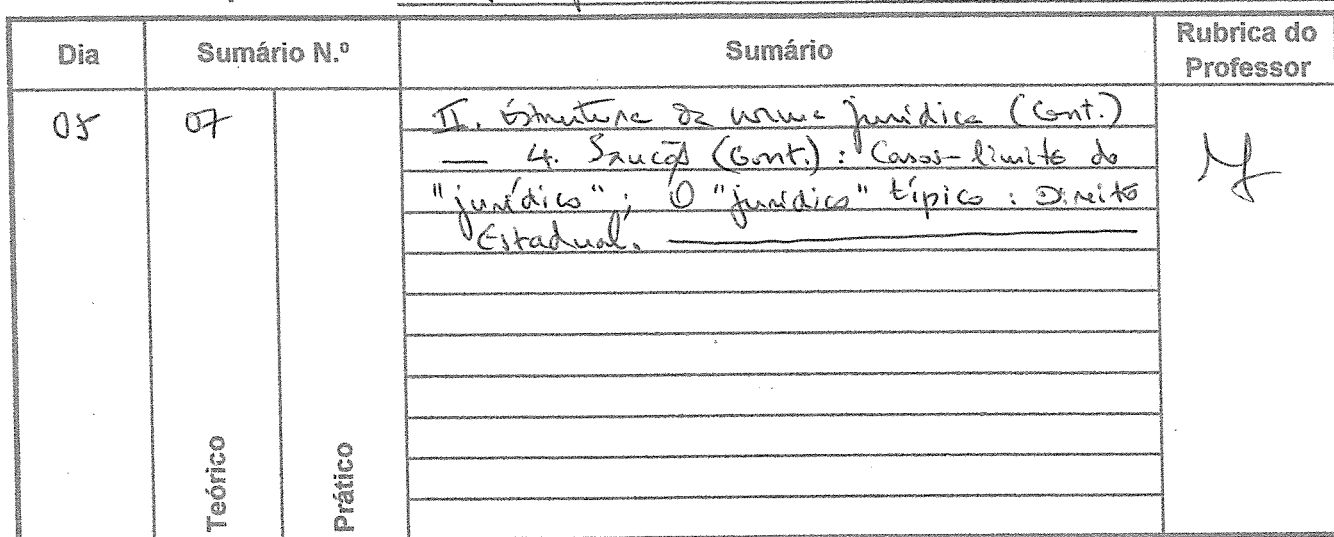 Dia
Sumário N.º
Sumário
Rubrica do
Professor
05
07
II. Estrutura da norma jurídica (Cont.)
— 4. Sanção (Cont.): Casos-limite do
"jurídico"; O "jurídico" típico: Direito
Estadual.
Teórico
Prático